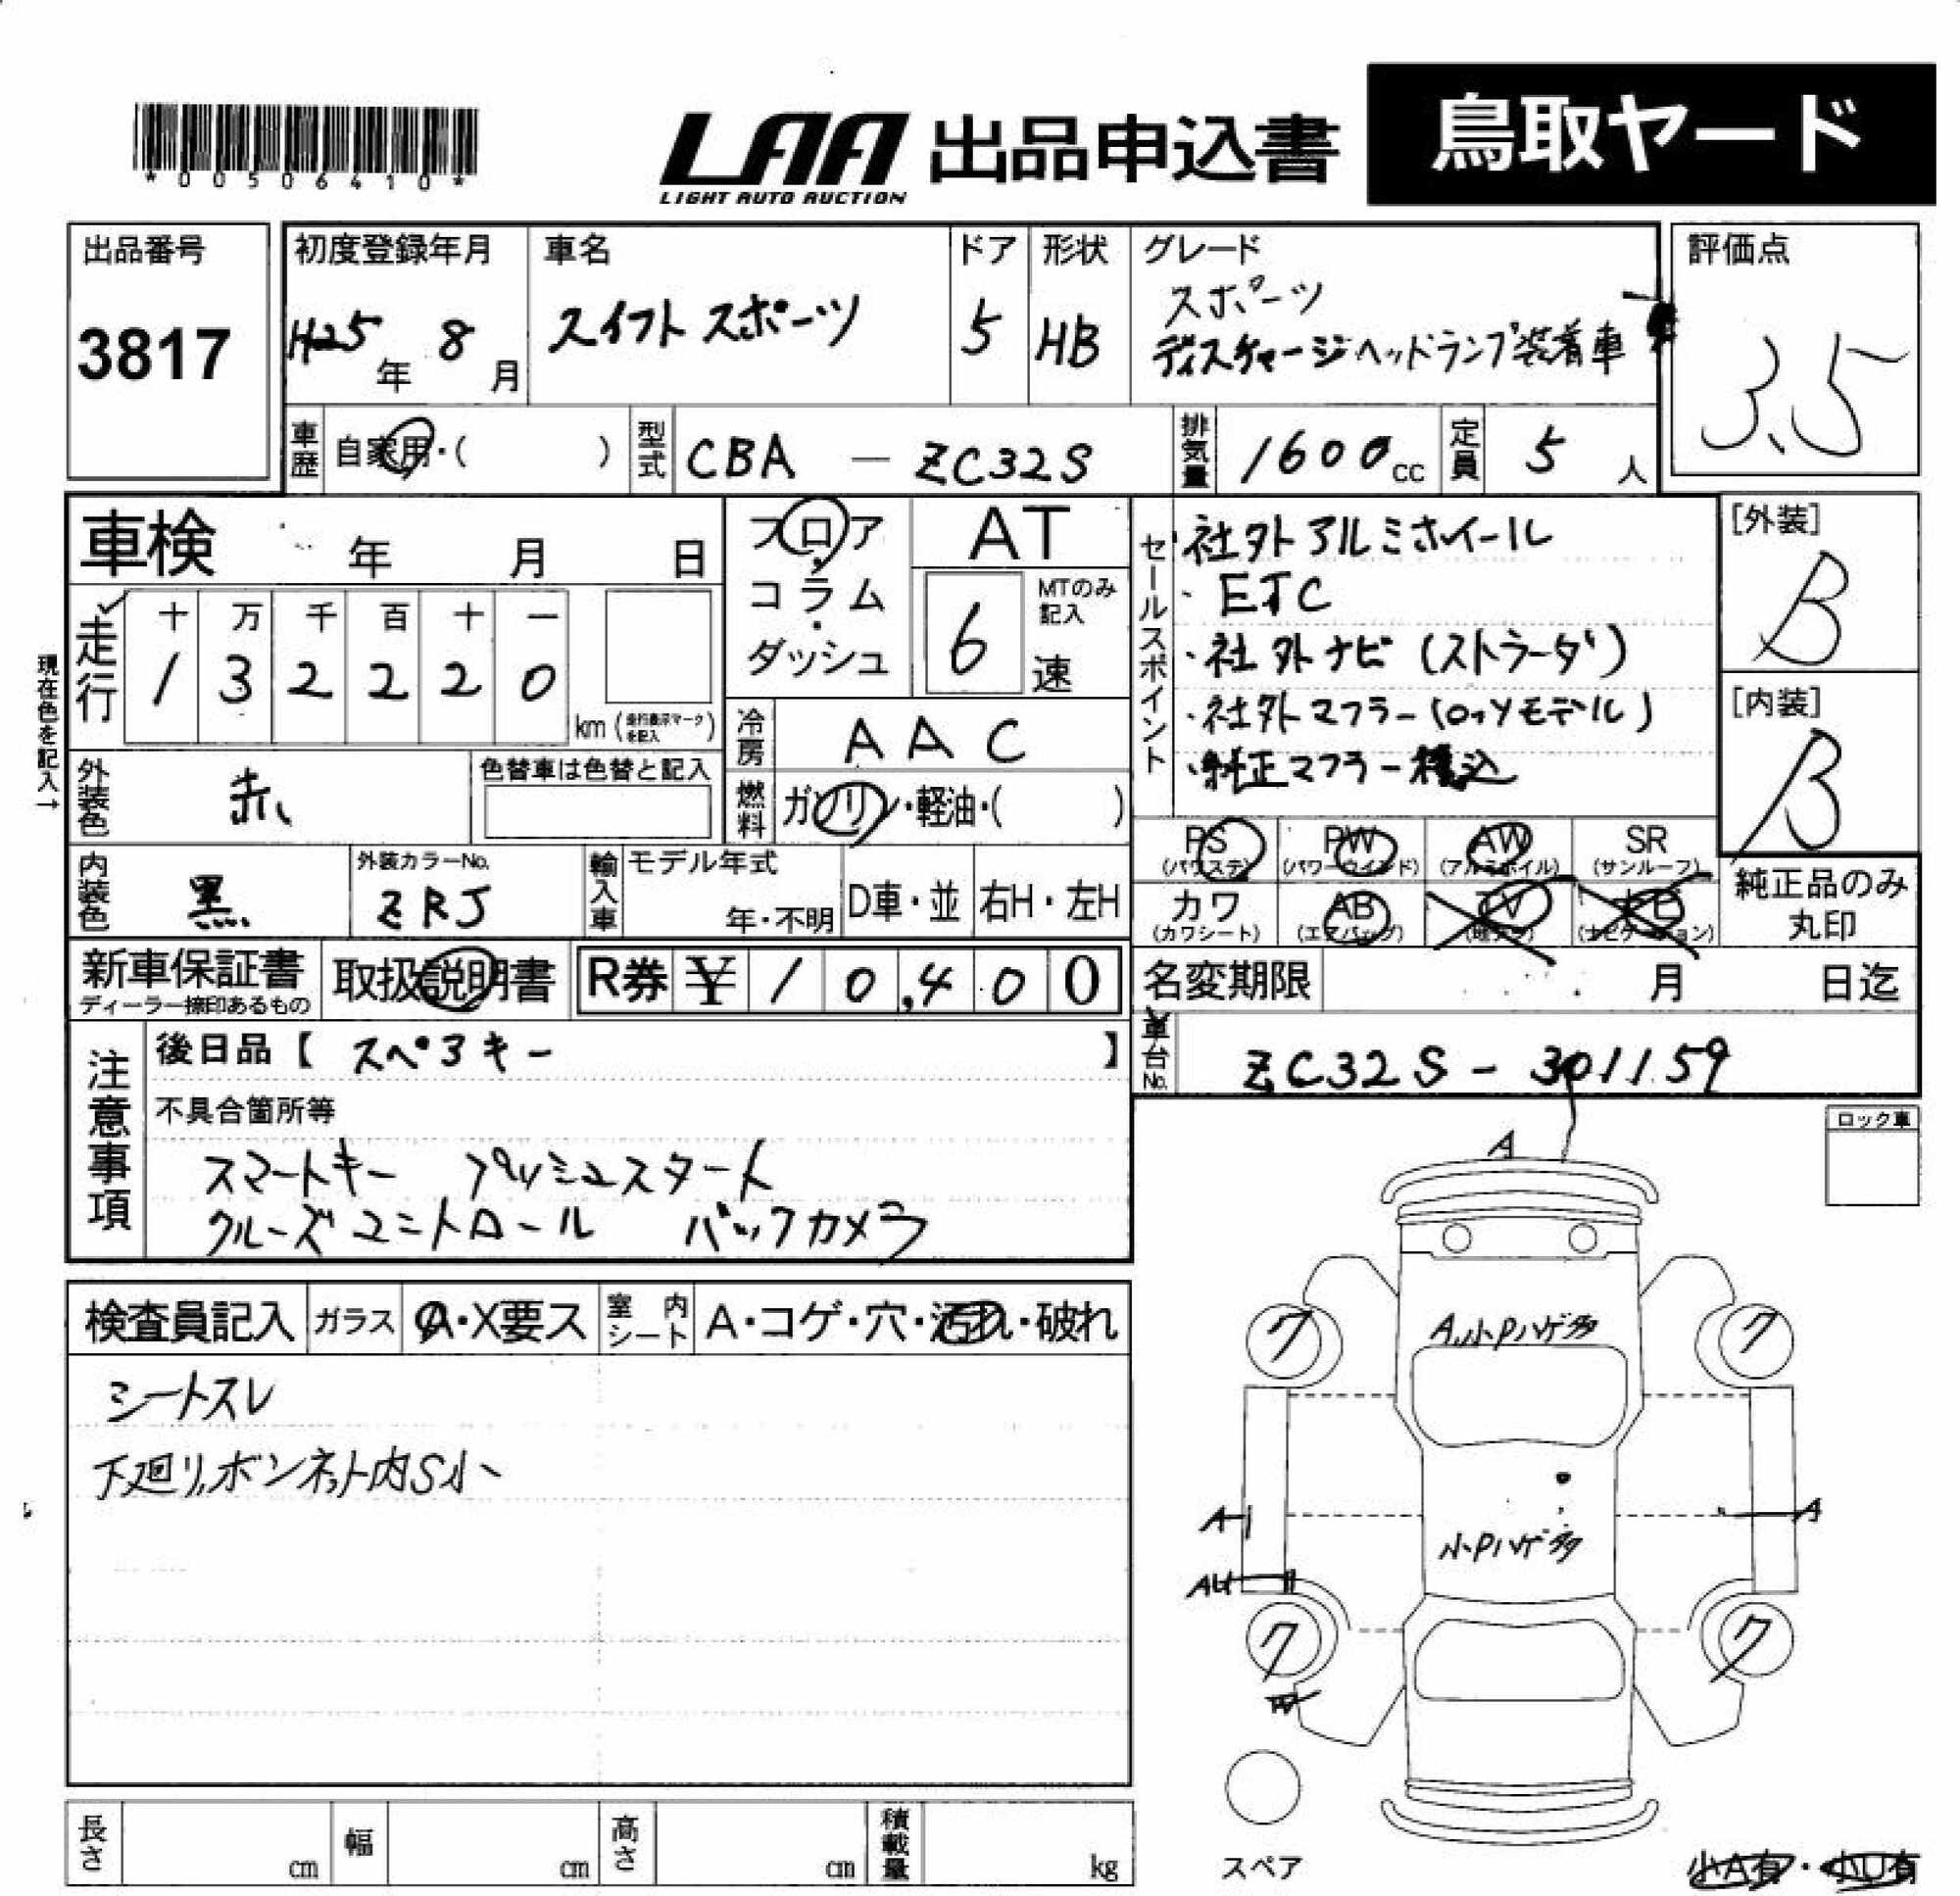 *00506410*
LAA 出品申込書 鳥取ヤード
LIGHT AUTO AUCTION
出品番号
3817
初度登録年月
H25年 8月
車名
スイフト スポーツ
ドア
5
形状
HB
グレード
スポーツ
ディスチャージヘッドランプ装着車
評価点
3.5
車歴 自家用・( )
型式 CBA - ZC32S
排気量 1600cc
定員 5人
車検 年 月 日
フロア・コラム・ダッシュ
AT
6速
MTのみ記入
セールスポイント
・社外アルミホイール
・ETC
・社外ナビ (ストラーダ)
・社外マフラー(
モデル)
・純正マフラー積込
[外装]
B
[内装]
B
現在色を記入→
走行
十 万 千 百 十 一
1 3 2 2 2 0
km (走行表示マークを記入)
冷房 AAC
外装色 赤
色替車は色替と記入
燃料 ガソリン・軽油・( )
PS (パワステ)
PW (パワーウインド)
AW (アルミホイル)
SR (サンルーフ)
カワ (カワシート)
AB (エアバッグ)
TV
純正品のみ丸印
内装色 黒
外装カラーNo.
ZRJ
輸入車 モデル年式
年・不明
D車・並
右H・左H
新車保証書
ディーラー捺印あるもの
取扱説明書
R券 ¥10,400
名変期限 月 日迄
車台No. ZC32S - 301159
注意事項
後日品【 スペアキー 】
不具合箇所等
スマートキー プッシュスタート
クルーズコントロール バックカメラ
ロック車
検査員記入
ガラス A・X要ス
室内シート A・コゲ・穴・汚れ・破れ
シートスレ
下廻リ,ボンネット内S小
A
A,小Pハゲ多
ワ
ワ
A
A
小Pハゲ多
AU
ワ
ワ
スペア
小A有・小U有
長さ cm
幅 cm
高さ cm
積載量 kg